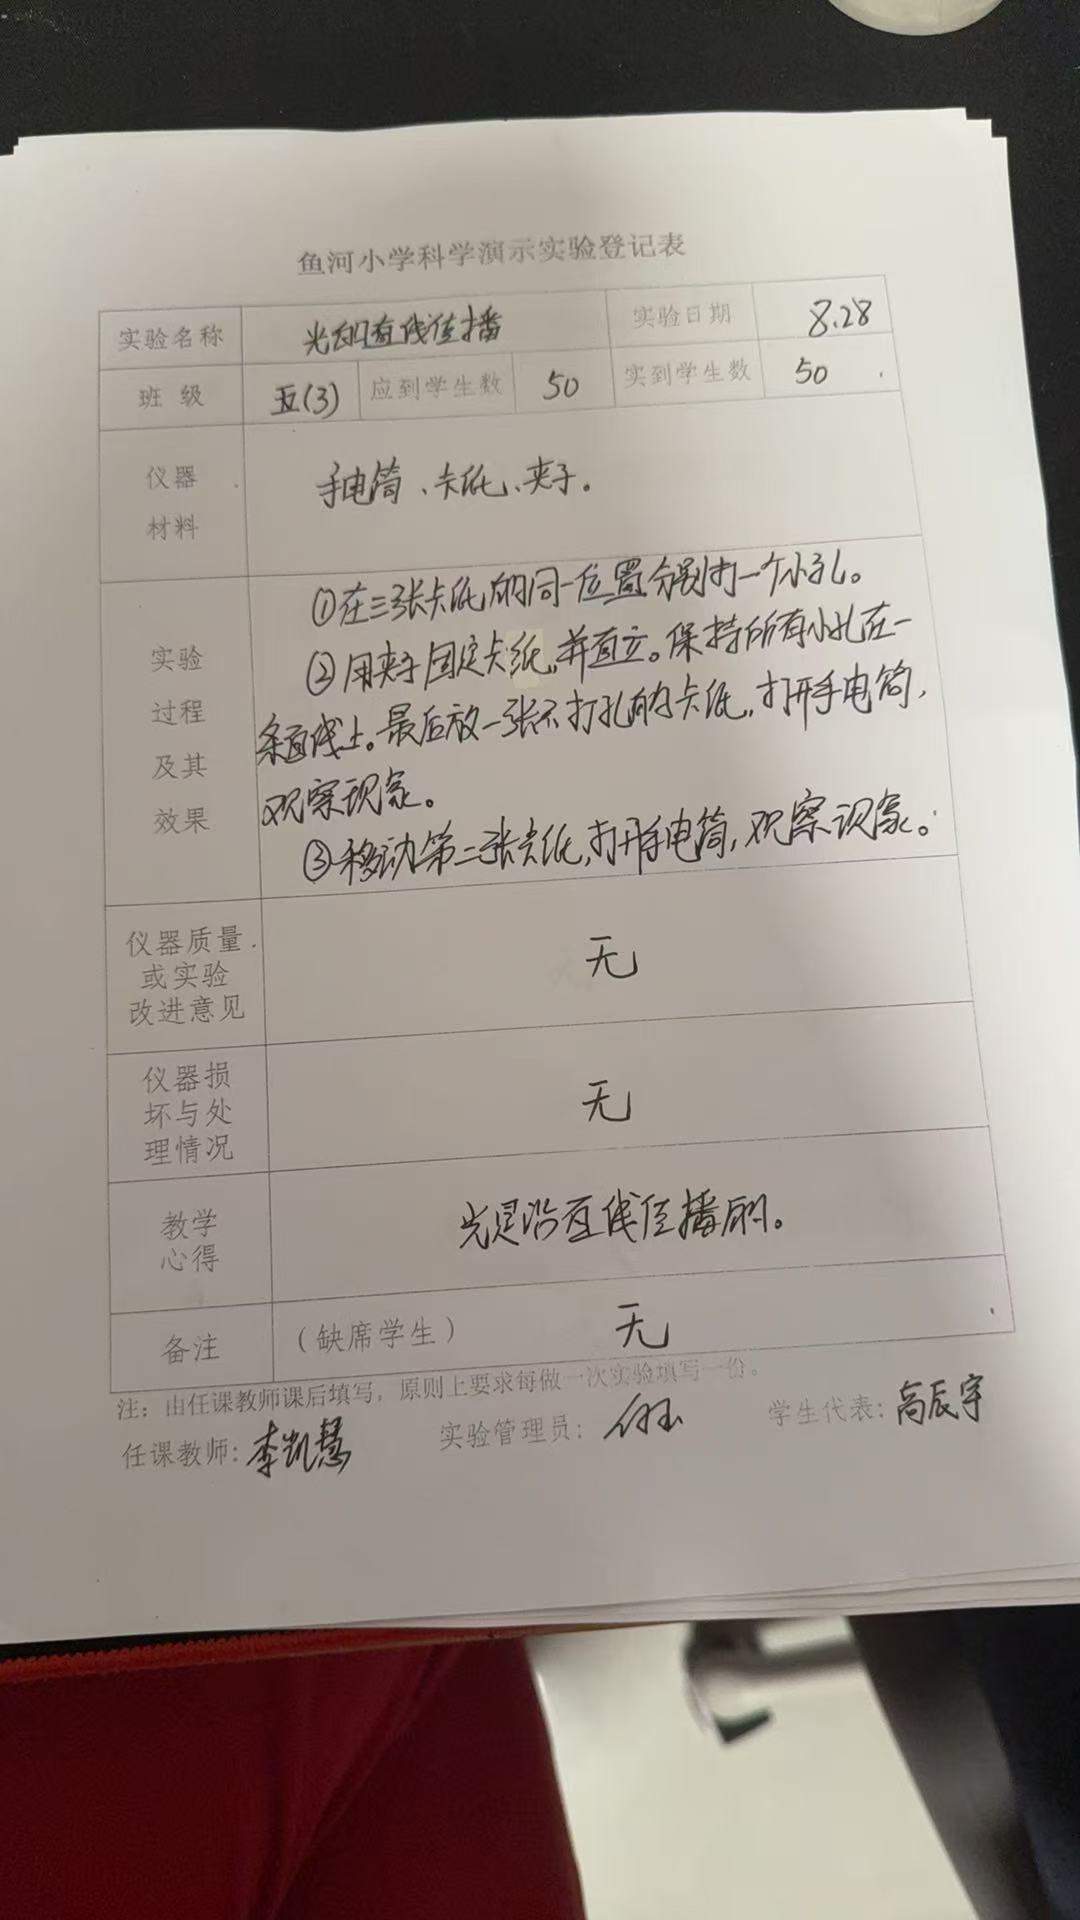 鱼河小学科学演示实验登记表
实验名称 光的直线传播 实验日期 8.28
班 级 五(3) 应到学生数 50 实到学生数 50
仪器
材料
手电筒、卡纸、夹子。
实验
过程
及其
效果
①在三张卡纸的同一位置分别打一个小孔。
②用夹子固定卡纸,并直立。保持所有小孔在一
条直线上。最后放一张不打孔的卡纸,打开手电筒,
观察现象。
③移动第二张卡纸,打开手电筒,观察现象。
仪器质量
或实验
改进意见
无
仪器损
坏与处
理情况
无
教学
心得
光是沿直线传播的。
备注 (缺席学生) 无
注:由任课教师课后填写,原则上要求每做一次实验填写一份。
任课教师:李凯慧 实验管理员: 学生代表:高辰宇